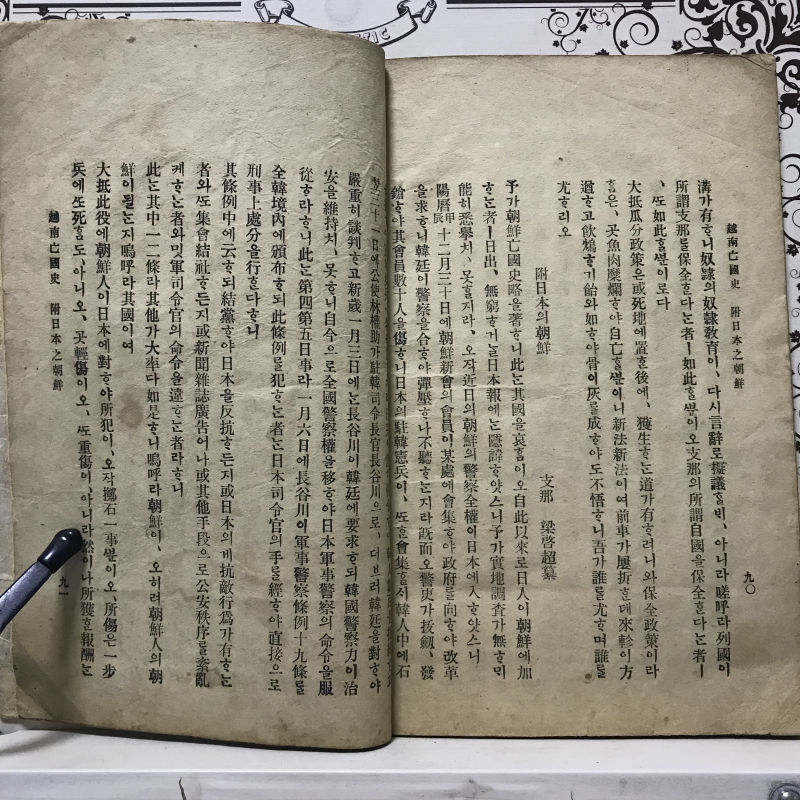 越南亡國史 附日本之朝鮮
九〇
溝가有ᄒᆞ니奴隷의奴隷敎育이、다시言辭로擬議ᄒᆞᆯ비、아니라嗟呼라列國이
所謂支那ᄅᆞᆯ保全ᄒᆞᆫ다ᄂᆞᆫ者ㅣ如此ᄒᆞᆯᄲᅮᆫ이오支那의所謂自國을保全ᄒᆞᆫ다ᄂᆞᆫ者ㅣ
、ᄯᅩ如此ᄒᆞᆯᄲᅮᆫ이로다
大抵瓜分政策은或死地에置ᄒᆞᆫ後에、獲生ᄒᆞᄂᆞᆫ道가有ᄒᆞ려니와保全政策이라
ᄒᆞᆷ은、곳魚肉糜爛ᄒᆞ야自亡ᄒᆞᆯᄲᅮᆫ이니新法新法이여前車가屢折ᄒᆞᆫᄃᆡ來軫이方
遒ᄒᆞ고飮鴆ᄒᆞ기飴와如ᄒᆞ야骨이灰ᄅᆞᆯ成ᄒᆞ야도不悟ᄒᆞ니吾가誰ᄅᆞᆯ尤ᄒᆞ며誰ᄅᆞᆯ
尤ᄒᆞ리오
附日本의朝鮮
支那 梁啓超纂
予가朝鮮亡國史略을著ᄒᆞ니此ᄂᆞᆫ其國을哀ᄒᆞᆷ이오自此以來로日人이朝鮮에加
ᄒᆞᄂᆞᆫ者ㅣ日出、無窮ᄒᆞ거ᄂᆞᆯ日本報에ᄂᆞᆫ隱諱ᄒᆞ얏스니予가實地調査가無ᄒᆞ믹
能히悉擧치、못ᄒᆞᆯ지라、오작近日의朝鮮의警察全權이日本에入ᄒᆞ얏스니
陽曆甲辰十二月三十日에朝鮮新會의會員이某處에會集ᄒᆞ야政府ᄅᆞᆯ向ᄒᆞ야改革
을求ᄒᆞ니韓廷이警察을合ᄒᆞ야彈壓ᄒᆞ나不聽ᄒᆞᄂᆞᆫ지라旣而오警吏가拔劒、發
鎗ᄒᆞ야其會員數十人을傷ᄒᆞ니日本의駐韓憲兵이、ᄯᅩᄒᆞᆫ會集ᄒᆞᆯᄉᆡ韓人中에石
三十一日에公使林權助가駐韓司令長官長谷川으로、더브러韓廷을對ᄒᆞ야
嚴重히談判ᄒᆞ고新歲一月三日에ᄂᆞᆫ長谷川이韓廷에要求ᄒᆞ되韓國警察力이治
安을維持치、못ᄒᆞ니自今으로全國警察權을移ᄒᆞ야日本軍事警察의命令을服
從ᄒᆞ라ᄒᆞ니此ᄂᆞᆫ第四第五日事라一月六日에長谷川이軍事警察條例十九條ᄅᆞᆯ
全韓境內에頒布ᄒᆞ되此條例ᄅᆞᆯ犯ᄒᆞᄂᆞᆫ者ᄂᆞᆫ日本司令官의手ᄅᆞᆯ經ᄒᆞ야直接으로
刑事上處分을行ᄒᆞᆫ다ᄒᆞ니
其條例中에云ᄒᆞ되結黨ᄒᆞ야日本을反抗ᄒᆞ든지或日本의게抗敵行爲가有ᄒᆞᄂᆞᆫ
者와ᄯᅩ集會結社ᄒᆞ든지或新聞雜誌廣告어나或其他手段으로公安秩序ᄅᆞᆯ紊亂
케ᄒᆞᄂᆞᆫ者와밋軍司令官의命令을違ᄒᆞᄂᆞᆫ者라ᄒᆞ니
此ᄂᆞᆫ其中一二條라其他가大率다如是ᄒᆞ니嗚呼라朝鮮이、오히려朝鮮人의朝
鮮이될ᄂᆞᆫ지嗚呼라其國이여
大抵此役에朝鮮人이日本에對ᄒᆞ야所犯이、오작擲石一事ᄲᅮᆫ이오、所傷은一步
兵에ᄯᅩ死ᄒᆞᆷ도아니오、곳輕傷이오、ᄯᅩ重傷이、아니라然이나所獲ᄒᆞᆫ報酬ᄂᆞᆫ
越南亡國史 附日本之朝鮮
九一